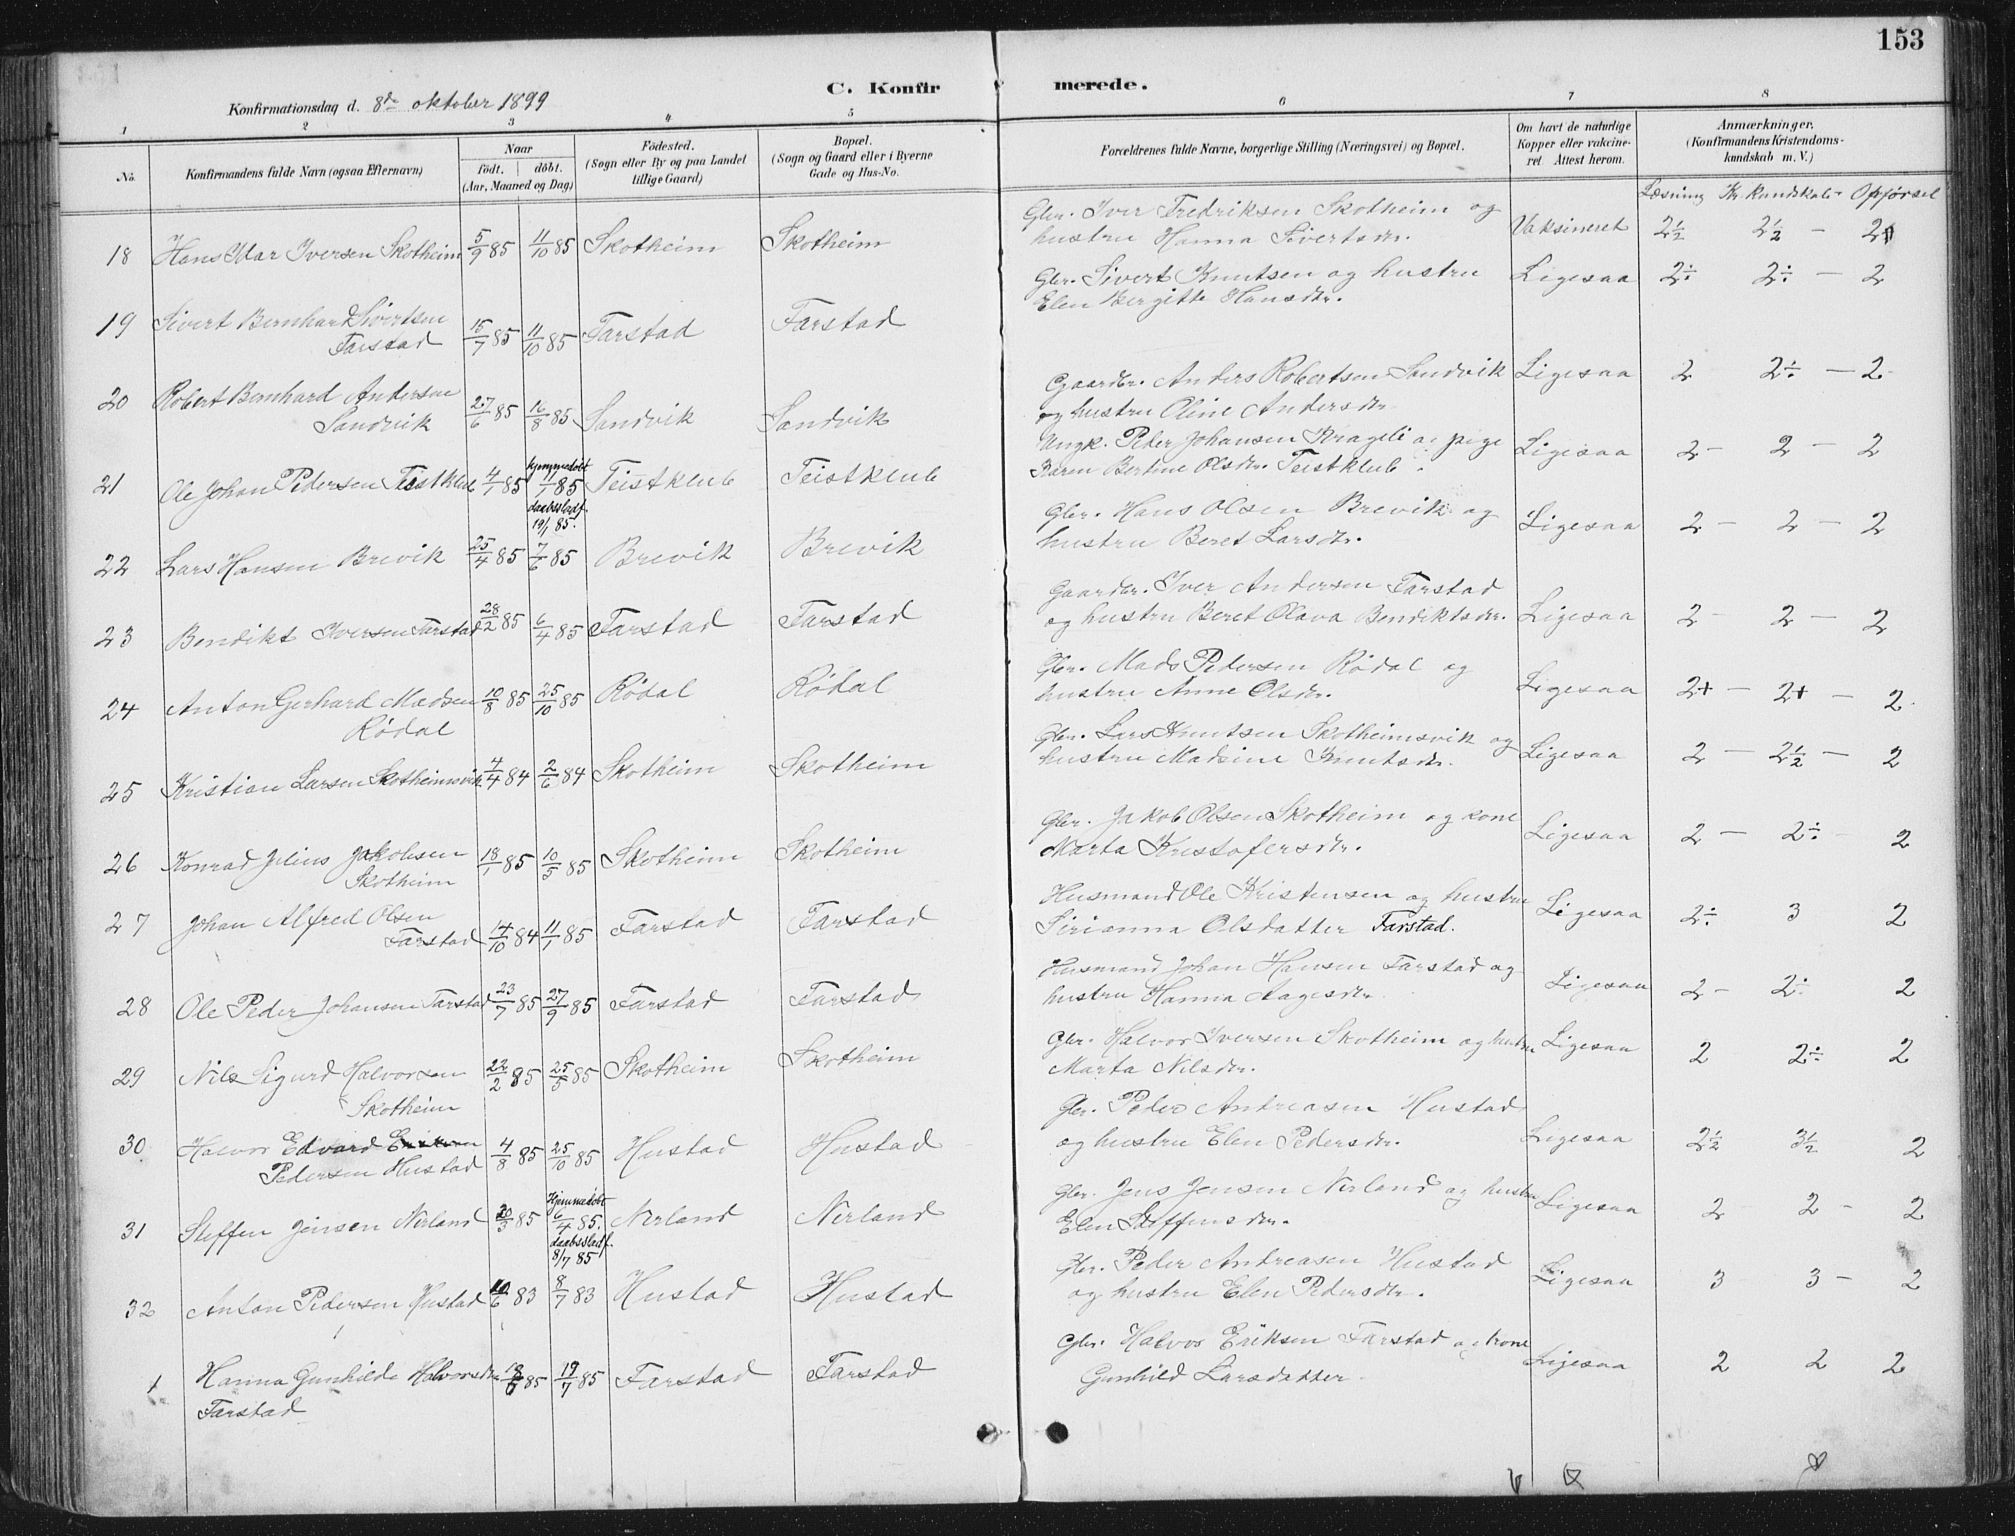 153
C. Konfirmerede.
Konfirmationsdag d. 8de oktober 1899
1 2 3 4 5 6 7 8
No.
Konfirmandens fulde Navn (ogsaa Efternavn)
Naar
født. døbt.
(Aar, Maaned og Dag)
Fødested.
(Sogn eller By og paa Landet
tillige Gaard)
Bopæl.
(Sogn og Gaard eller i Byerne
Gade og Hus-No.
Forældrenes fulde Navne, borgerlige Stilling (Næringsvei) og Bopæl.
Om havt de naturlige
Kopper eller vakcine-
ret Attest herom.
Anmærkninger.
(Konfirmandens Kristendoms-
kundskab m. V.)
Læsning Kr kundskab Opførsel
18 Hans Idar Iversen Skotheim 5/9 85 11/10 85 Skotheim Skotheim Gbr. Iver Fredriksen Skotheim og
hustru Hanna Sivertsdr. Vaksineret 2½ 2½ - 2
19 Sivert Bernhard Sivertsen
Farstad 15/7 85 11/10 85 Farstad Farstad Gbr. Sivert Knutsen og hustru
Elen Bergitte Hansdr. Ligesaa 2÷ 2÷ - 2
20 Robert Bernhard Andersen
Sandvik 27/6 85 16/8 85 Sandvik Sandvik Gaardbr. Anders Robertsen Sandvik
og hustru Oline Andersdr. Ligesaa 2 2÷ - 2
21 Ole Johan Pedersen Teistkleb 4/1 85 hjemmedøbt
11/1 85
daabsstadf.
19/1 85. Teistkleb Teistkleb Ungk. Peder Johansen Krageli og pige
Karen Bertine Olsdr. Teistkleb. Ligesaa 2 - 2 - 2
22 Lars Hansen Brevik 25/4 85 7/6 85 Brevik Brevik Gbr. Hans Olsen Brevik og
hustru Beret Larsdr. Ligesaa 2 - 2 - 2
23 Bendikt Iversen Farstad 28/2 85 6/4 85 Farstad Farstad Gaardbr. Iver Andersen Farstad
og hustru Beret Olava Bendiktsdr. Ligesaa 2 - 2 - 2
24 Anton Gerhard Madsen
Rødal 10/8 85 25/10 85 Rødal Rødal Gbr. Mads Pedersen Rødal og
hustru Anne Olsdr. Ligesaa 2+ - 2+ - 2
25 Kristian Larsen Skotheimsvik 4/4 84 2/6 84 Skotheim Skotheim Gbr. Lars Knutsen Skotheimsvik og
hustru Madsine Knutsdr. Ligesaa 2 - 2½ - 2
26 Konrad Julius Jakobsen
Skotheim 18/1 85 10/5 85 Skotheim Skotheim Gbr. Jakob Olsen Skotheim og kone
Marta Kristofersdr. Ligesaa 2 - 2÷ - 2
27 Johan Alfred Olsen
Farstad 14/10 84 11/1 85 Farstad Farstad Husmand Ole Kristensen og hustru
Sirianna Olsdatter Farstad. Ligesaa 2÷ 3 2
28 Ole Peder Johansen Farstad 23/7 85 27/9 85 Farstad Farstad Husmand Johan Hansen Farstad og
hustru Hanna Aagesdr. Ligesaa 2 - 2÷ 2
29 Nils Sigurd Halvorsen
Skotheim 22/2 85 25/5 85 Skotheim Skotheim Gbr. Halvor Iversen Skotheim og hustru
Marta Nilsdr. Ligesaa 2 2÷ 2
30 Halvor Edvard
Pedersen Hustad 4/8 85 25/10 85 Hustad Hustad Gbr. Peder Andreasen Hustad
og hustru Elen Pedersdr. Ligesaa 2½ 3½ 2
31 Steffen Jensen Nerland 20/3 85 Hjemmedøbt
6/4 85.
daabsstadf.
8/7 85 Nerland Nerland Gbr. Jens Jensen Nerland og hustru
Elen Steffensdr. Ligesaa 2 - 2 - 2
32 Anton Pedersen Hustad 10/6 83 8/7 83 Hustad Hustad Gbr. Peder Andreasen Hustad
og hustru Elen Pedersdr. Ligesaa 3 3 - 2
1 Hanna Gunhilde Halvorsdtr
Farstad 85 19/7 85 Farstad Farstad Gbr. Halvor Eriksen Farstad og kone
Gunhild Larsdatter Ligesaa 2 2 2